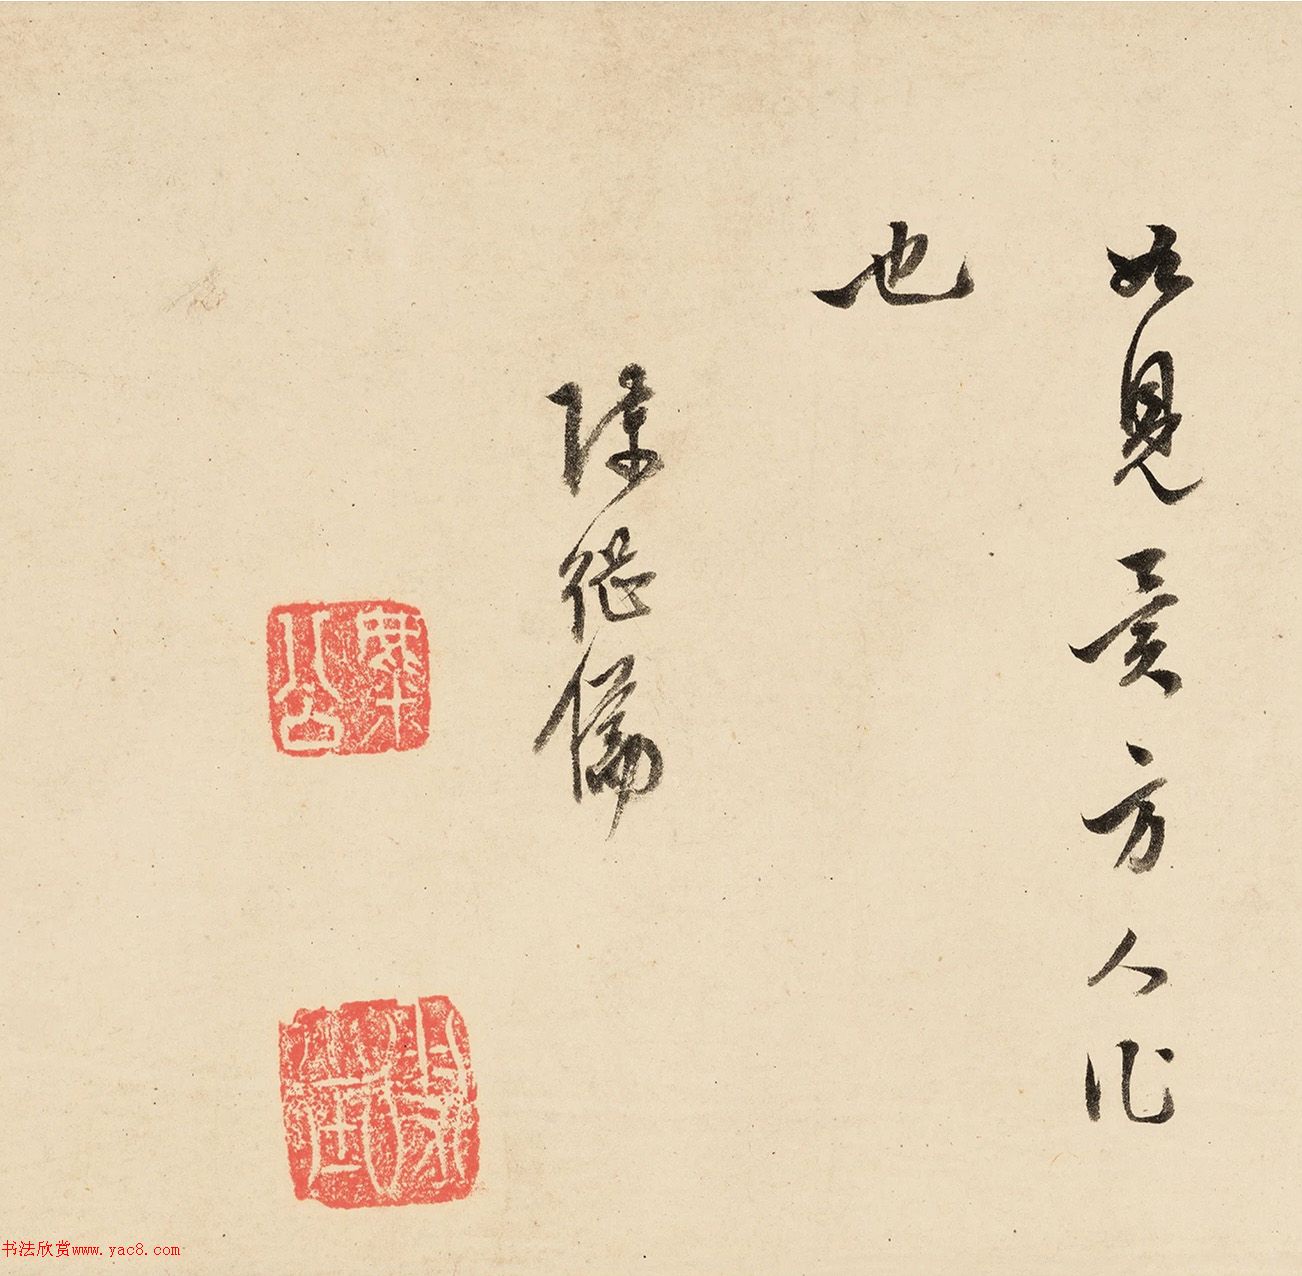 如見方人作
也
陳繼儒
麋公
书法欣赏www.yac8.com